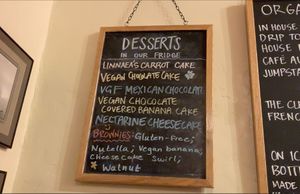 DESSERTS
IN OUR FRIDGE
LINNAEA'S CARROT CAKE
VEGAN CHOCOLATE CAKE
VGF MEXICAN CHOCOLATE
VEGAN CHOCOLATE
COVERED BANANA CAKE
NECTARINE CHEESECAKE
BROWNIES: Gluten-free;
Nutella; Vegan banana;
Cheesecake Swirl;
Walnut
ORGA
IN HOUSE
DRIP TO
HOUSE
CAFÉ AU
JUMPSTA
FRENC
ON IC
BOTTL